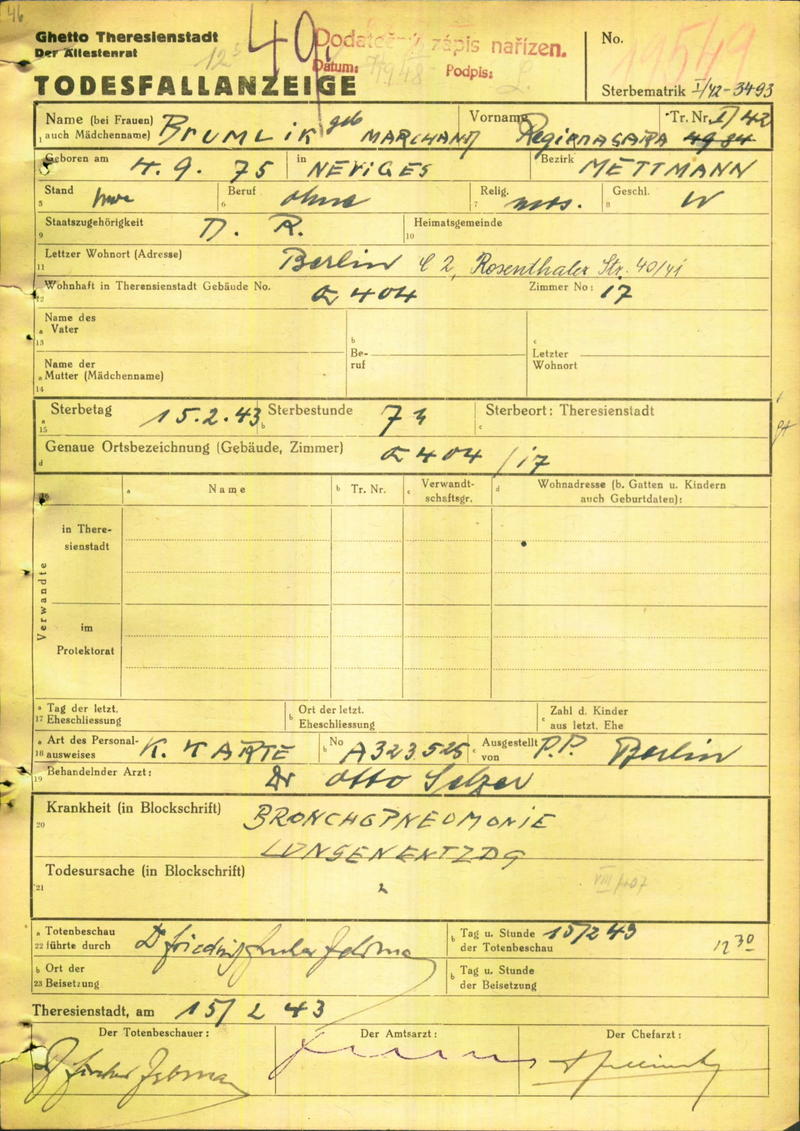 46
Ghetto Theresienstadt
Der Ältestenrat
TODESFALLANZEIGE
40
Dodatečný zápis nařízen.
Datum: 1948 Podpis:
No. 19549
Sterbematrik I/42-3493
Name (bei Frauen) BRUMLIK geb MARCHAND Vorname Regina Sara Tr. Nr. I/42
1 auch Mädchenname) 4984
Geboren am 4. 9. 75 in NEVIGES Bezirk METTMANN
Stand Beruf ohne Relig. mos. Geschl. W
5 6 7 8
Staatszugehörigkeit D. R. Heimatsgemeinde
9 10
Lettzer Wohnort (Adresse) Berlin C 2, Rosenthaler Str. 40/41
11
Wohnhaft in Therensienstadt Gebäude No. Q 404 Zimmer No: 17
12
Name des
a Vater
13
b Beruf
c Letzter Wohnort
Name der
a Mutter (Mädchenname)
14
a Sterbetag 15.2.43 b Sterbestunde 7 h c Sterbeort: Theresienstadt
15
d Genaue Ortsbezeichnung (Gebäude, Zimmer) Q 404 /17
a Name b Tr. Nr. c Verwandtschaftsgr. d Wohnadresse (b. Gatten u. Kindern auch Geburtdaten):
Verwandte
in Theresienstadt
im Protektorat
a Tag der letzt. b Ort der letzt. c Zahl d. Kinder
17 Eheschliessung Eheschliessung aus letzt. Ehe
a Art des Personal- K. KARTE b No A323525 c Ausgestellt P.P. Berlin
18 ausweises von
19 Behandelnder Arzt: Dr Otto Selzer
Krankheit (in Blockschrift) BRONCHOPNEOMONIE
20
LUNGENENTZDG
Todesursache (in Blockschrift)
21
a Totenbeschau Dr b Tag u. Stunde 15/2 43 12 30
22 führte durch der Totenbeschau
b Ort der b Tag u. Stunde
23 Beisetzung der Beisetzung
Theresienstadt, am 15/ 2 43
Der Totenbeschauer: Der Amtsarzt: Der Chefarzt: